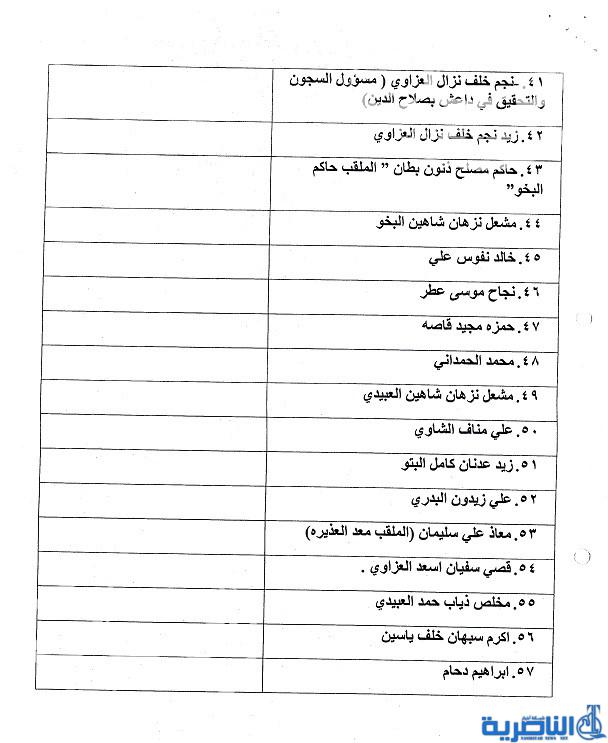 ٤١. نجم خلف نزال العزاوي ( مسؤول السجون
والتحقيق في داعش بصلاح الدين)
٤٢. زيد نجم خلف نزال العزاوي
٤٣. حاكم مصلح ذنون بطان " الملقب حاكم
البخو"
٤٤. مشعل نزهان شاهين البخو
٤٥. خالد نفوس علي
٤٦. نجاح موسى عطر
٤٧. حمزه مجيد قاصه
٤٨. محمد الحمداني
٤٩. مشعل نزهان شاهين العبيدي
٥٠. علي مناف الشاوي
٥١. زيد عدنان كامل البتو
٥٢. علي زيدون البدري
٥٣. معاذ علي سليمان (الملقب معد العذيره)
٥٤. قصي سفيان اسعد العزاوي .
٥٥. مخلص ذياب حمد العبيدي
٥٦. اكرم سبهان خلف ياسين
٥٧. ابراهيم دحام
شبكة اخبار
الناصرية
NASIRIYAH NEWS NET